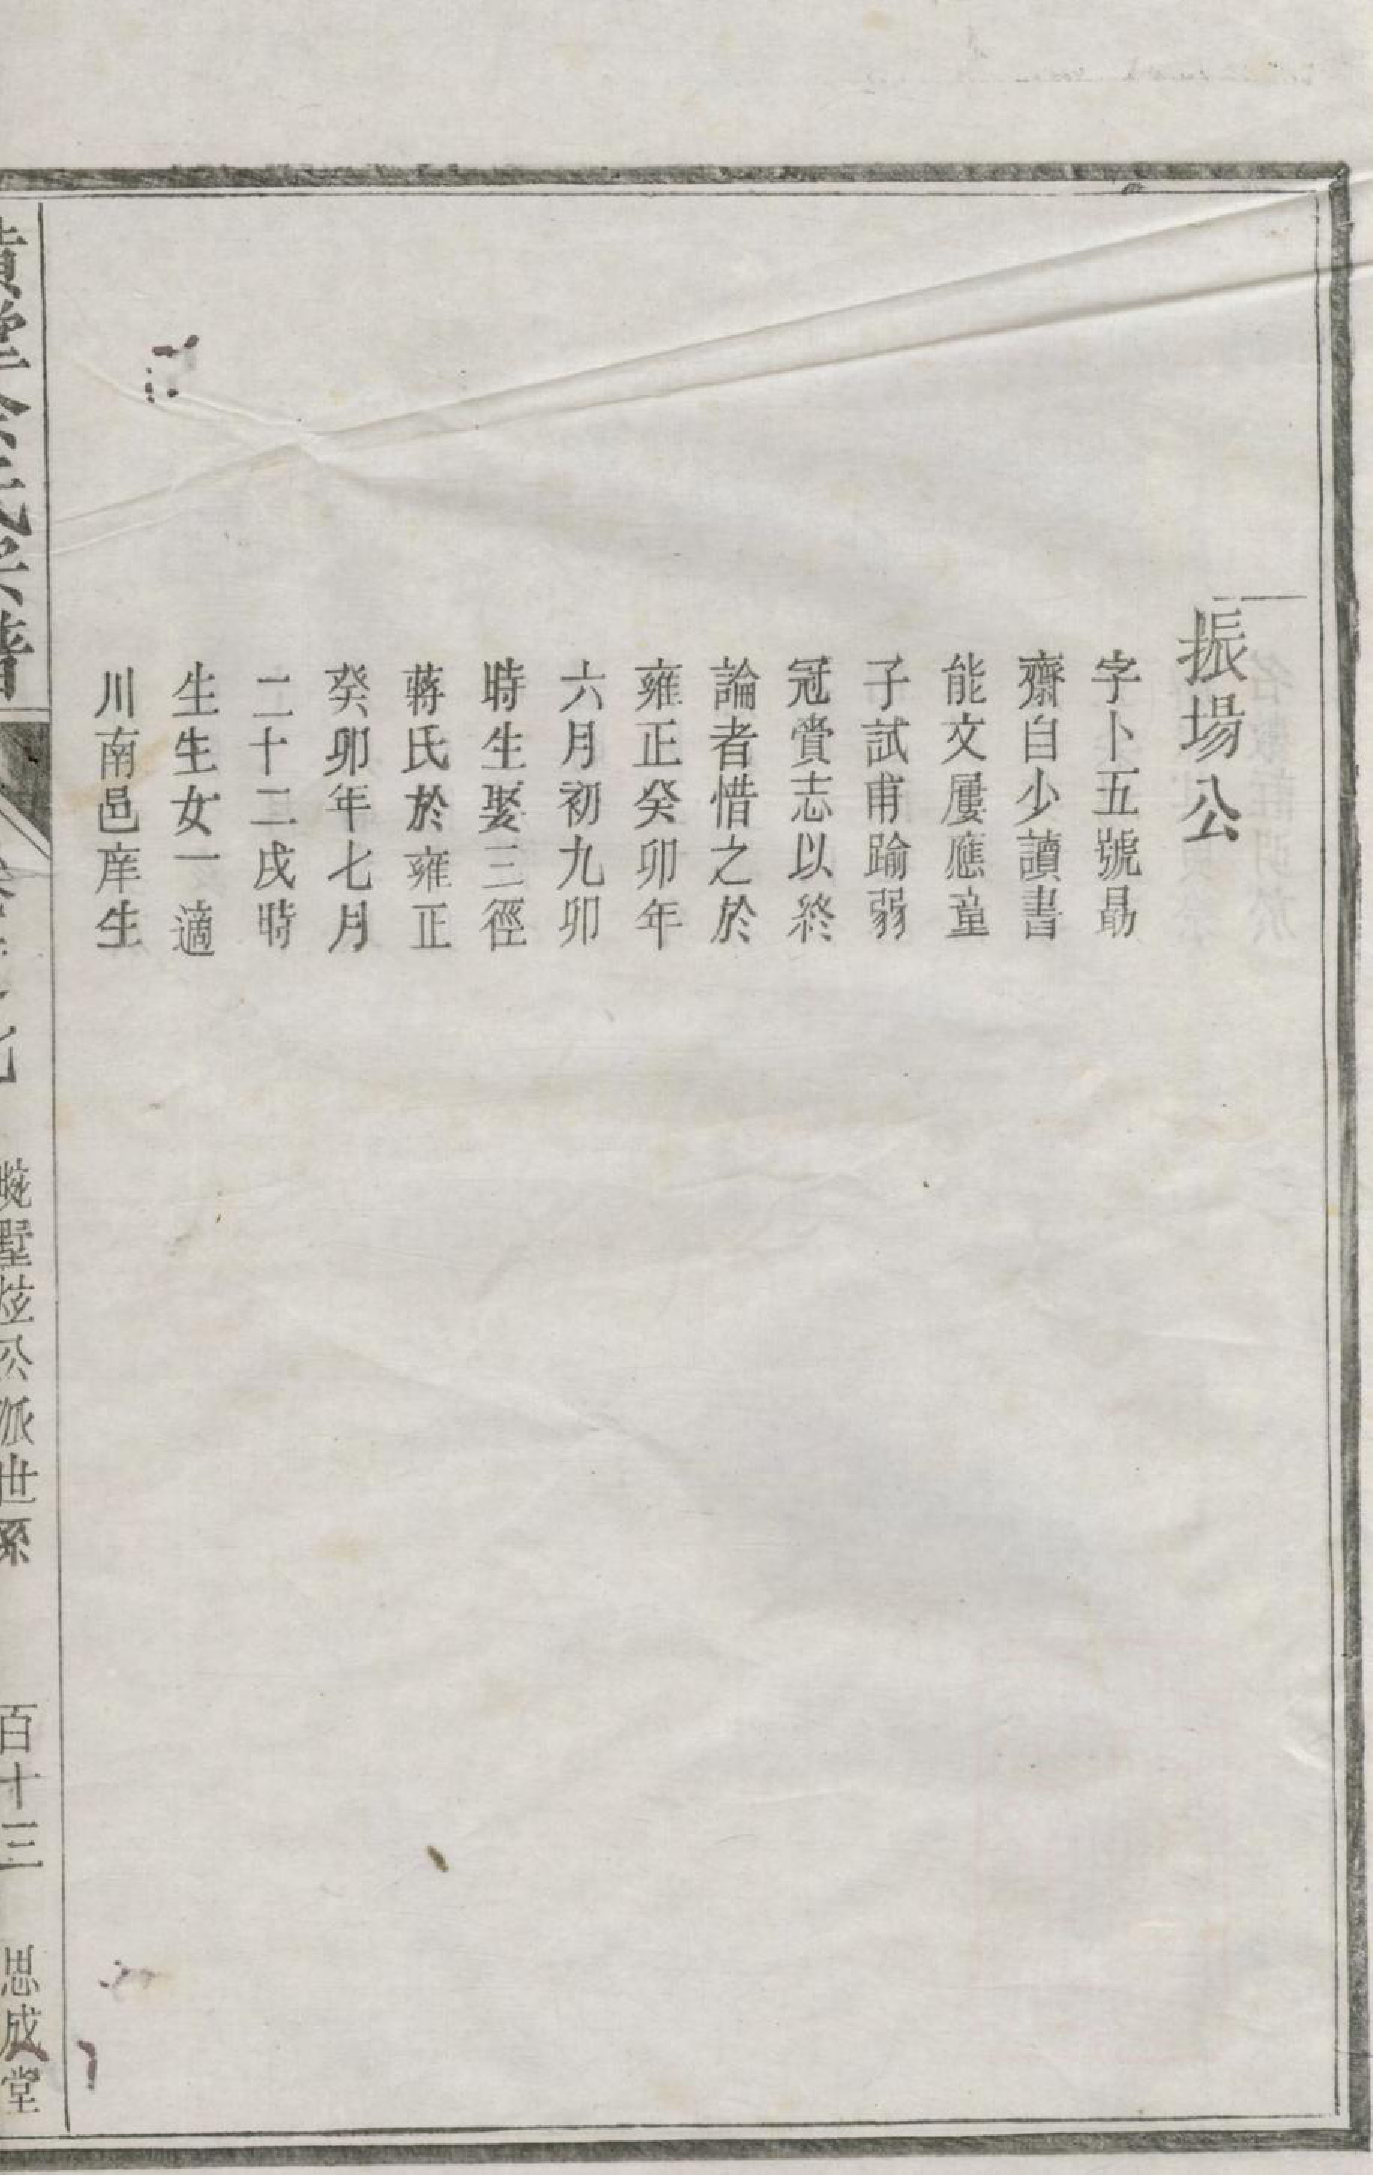 振場公
字卜五號勗
齋自少讀書
能文屢應童
子試甫踰弱
冠賞志以終
論者惜之於
雍正癸卯年
六月初九卯
時生娶三徑
蔣氏於雍正
癸卯年七月
二十二戌時
生生女一適
川南邑庠生
氏宗譜
墅 公派世系
百十三
思成堂